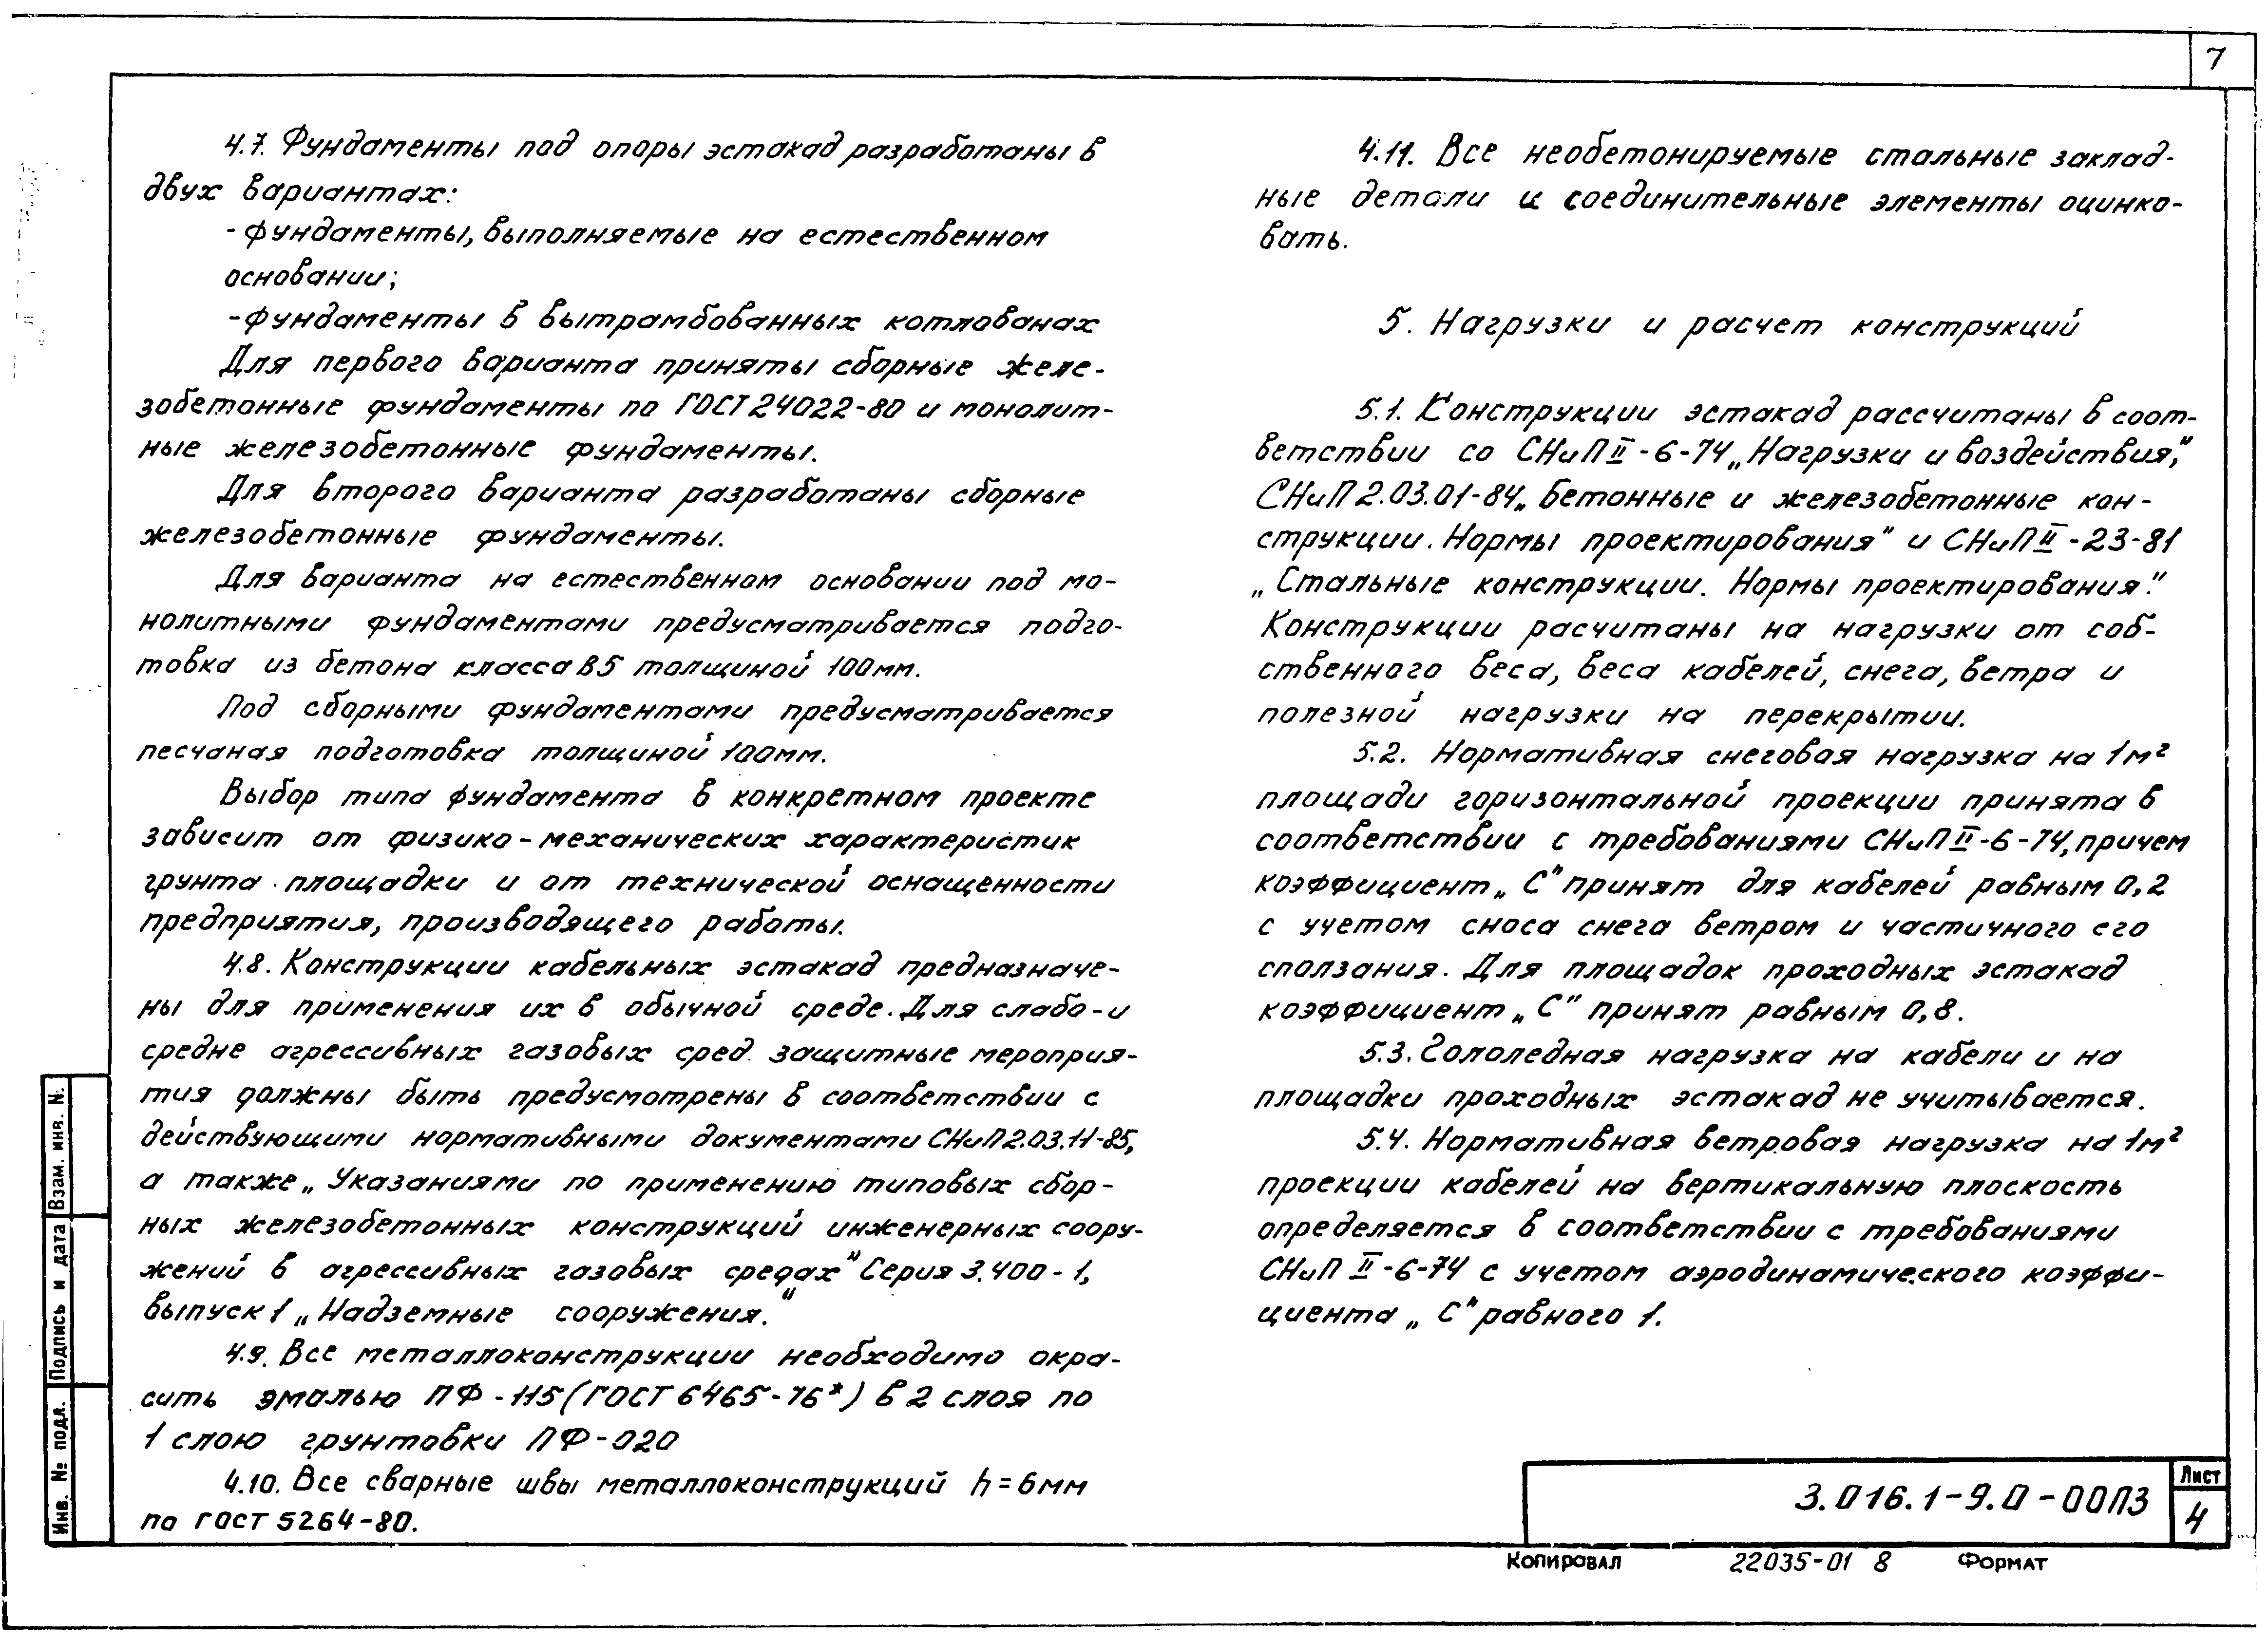 7
4.7. Фундаменты под опоры эстакад разработаны в
двух вариантах:
- фундаменты, выполняемые на естественном
основании;
- фундаменты в вытрамбованных котлованах
Для первого варианта приняты сборные желе-
зобетонные фундаменты по ГОСТ 24022-80 и монолит-
ные железобетонные фундаменты.
Для второго варианта разработаны сборные
железобетонные фундаменты.
Для варианта на естественном основании под мо-
нолитными фундаментами предусматривается подго-
товка из бетона класса В5 толщиной 100мм.
Под сборными фундаментами предусматривается
песчаная подготовка толщиной 100мм.
Выбор типа фундамента в конкретном проекте
зависит от физико-механических характеристик
грунта площадки и от технической оснащенности
предприятия, производящего работы.
4.8. Конструкции кабельных эстакад предназначе-
ны для применения их в обычной среде. Для слабо-и
средне агрессивных газовых сред защитные мероприя-
тия должны быть предусмотрены в соответствии с
действующими нормативными документами СНиП 2.03.11-85,
а также „Указаниями по применению типовых сбор-
ных железобетонных конструкций инженерных соору-
жений в агрессивных газовых средах" Серия 3.400-1,
выпуск 1 „Надземные сооружения."
4.9. Все металлоконструкции необходимо окра-
сить эмалью ПФ-115 (ГОСТ 6465-76*) в 2 слоя по
1 слою грунтовки ПФ-020
4.10. Все сварные швы металлоконструкций h=6мм
по ГОСТ 5264-80.
4.11. Все необетонируемые стальные заклад-
ные детали и соединительные элементы оцинко-
вать.
5. Нагрузки и расчет конструкций
5.1. Конструкции эстакад рассчитаны в соот-
ветствии со СНиП II-6-74 „Нагрузки и воздействия,"
СНиП 2.03.01-84 „Бетонные и железобетонные кон-
струкции. Нормы проектирования" и СНиП II-23-81
„Стальные конструкции. Нормы проектирования."
Конструкции расчитаны на нагрузки от соб-
ственного веса, веса кабелей, снега, ветра и
полезной нагрузки на перекрытии.
5.2. Нормативная снеговая нагрузка на 1м²
площади горизонтальной проекции принята в
соответствии с требованиями СНиП II-6-74, причем
коэффициент „С" принят для кабелей равным 0,2
с учетом сноса снега ветром и частичного его
сползания. Для площадок проходных эстакад
коэффициент „С" принят равным 0,8.
5.3. Гололедная нагрузка на кабели и на
площадки проходных эстакад не учитывается.
5.4. Нормативная ветровая нагрузка на 1м²
проекции кабелей на вертикальную плоскость
определяется в соответствии с требованиями
СНиП II-6-74 с учетом аэродинамического коэффи-
циента „С" равного 1.
Взам. инв. №
Подпись и дата
Инв. № подл.
3.016.1-9.0-00ПЗ
Лист
4
Копировал 22035-01 8 Формат